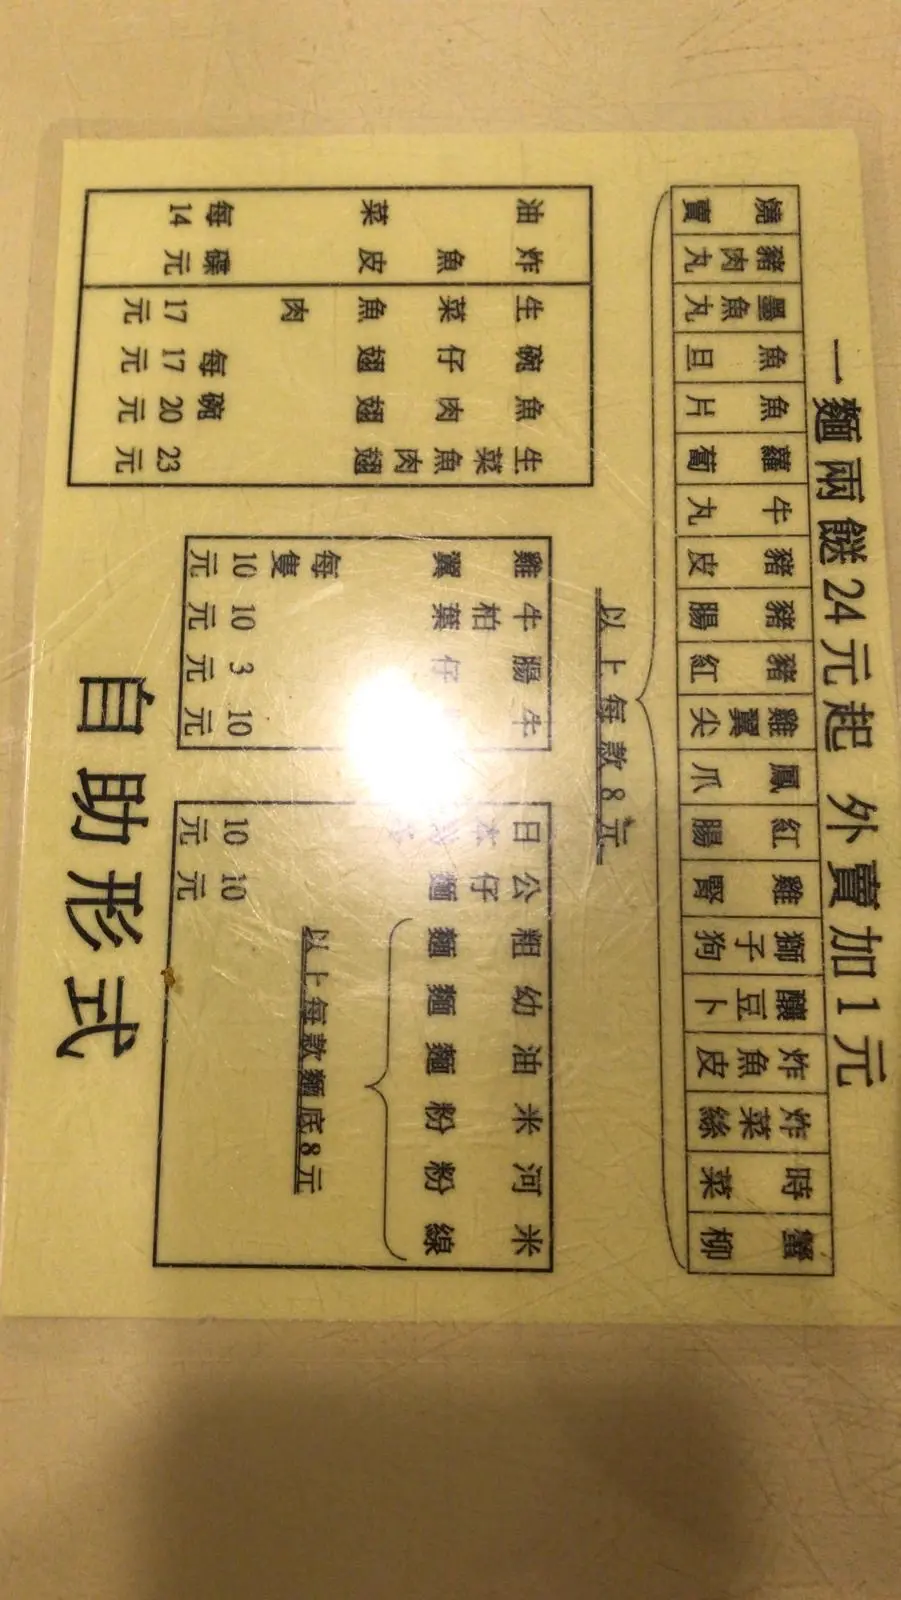 一麵兩餸24元起 外賣加1元
燒賣
豬肉丸
墨魚丸
魚旦
魚片
蘿蔔
牛丸
豬皮
豬腸
豬紅
雞翼尖
鳳爪
紅腸
雞腎
獅子狗
釀豆卜
炸魚皮
炸菜絲
時菜
蟹柳
以上每款8元
油菜
炸魚皮
每碟
14元
生菜魚肉 17元
碗仔翅 17元
魚肉翅 20元
生菜魚肉翅 23元
每碗
雞翼 每隻 10元
牛柏葉 10元
腸仔 3元
牛 10元
日本 10元
公仔麵 10元
粗麵
幼麵
油麵
米粉
河粉
米線
以上每款麵底8元
自助形式